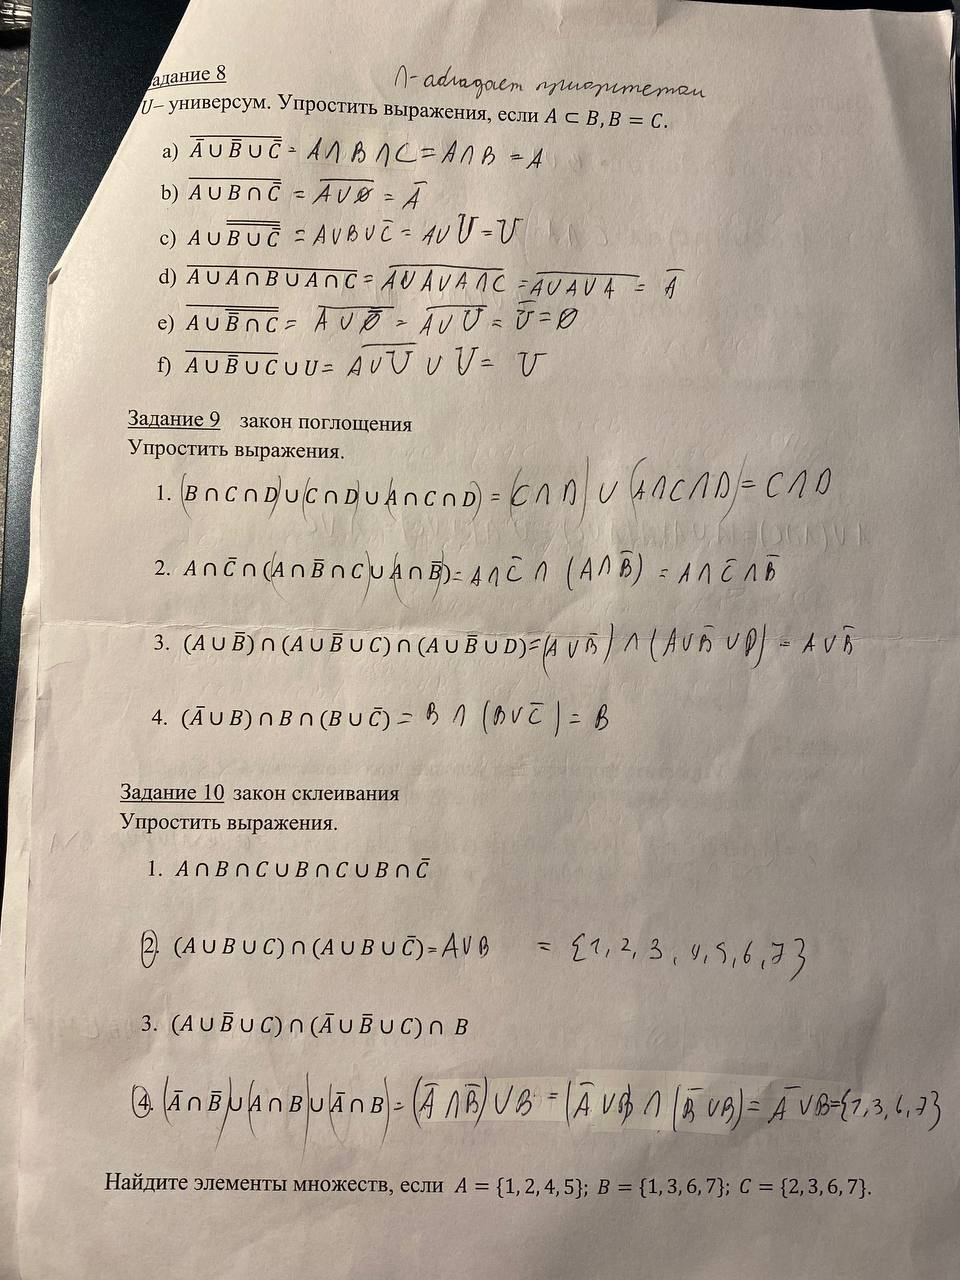 адание 8 ∩- обладает приоритетом
U– универсум. Упростить выражения, если A ⊂ B, B = C.
a) $\overline{\bar{A} ∪ \bar{B} ∪ \bar{C}}$ = A∩B∩C = A∩B = A
b) $\overline{A ∪ B ∩ \bar{C}}$ = $\overline{A∪∅}$ = $\bar{A}$
c) $A ∪ \overline{\overline{B ∪ \bar{C}}}$ = A∪B∪$\bar{C}$ = A∪U = U
d) $\overline{A ∪ A ∩ B ∪ A ∩ C}$ = $\overline{A∪A∪A∩C}$ = $\overline{A∪A∪A}$ = $\bar{A}$
e) $\overline{A ∪ \overline{\bar{B} ∩ C}}$ = $\overline{A∪\bar{∅}}$ = $\overline{A∪U}$ = $\bar{U}$ = ∅
f) $\overline{A ∪ \bar{B} ∪ C} ∪ U$ = $\overline{A∪U}$ ∪ U = U
Задание 9 закон поглощения
Упростить выражения.
1. (B ∩ C ∩ D) ∪ (C ∩ D) ∪ (A ∩ C ∩ D) = (C∩D) ∪ (A∩C∩D) = C∩D
2. A ∩ $\bar{C}$ ∩ ((A ∩ $\bar{B}$ ∩ C) ∪ (A ∩ $\bar{B}$)) = A∩$\bar{C}$ ∩ (A∩$\bar{B}$) = A∩$\bar{C}$∩$\bar{B}$
3. (A ∪ $\bar{B}$) ∩ (A ∪ $\bar{B}$ ∪ C) ∩ (A ∪ $\bar{B}$ ∪ D) = (A∪$\bar{B}$) ∩ (A∪$\bar{B}$∪D) = A∪$\bar{B}$
4. ($\bar{A}$ ∪ B) ∩ B ∩ (B ∪ $\bar{C}$) = B ∩ (B∪$\bar{C}$) = B
Задание 10 закон склеивания
Упростить выражения.
1. A ∩ B ∩ C ∪ B ∩ C ∪ B ∩ $\bar{C}$
2. (A ∪ B ∪ C) ∩ (A ∪ B ∪ $\bar{C}$) = A∪B = {1, 2, 3, 4, 5, 6, 7}
3. (A ∪ $\bar{B}$ ∪ C) ∩ ($\bar{A}$ ∪ $\bar{B}$ ∪ C) ∩ B
4. ($\bar{A}$ ∩ $\bar{B}$) ∪ (A ∩ B) ∪ ($\bar{A}$ ∩ B) = ($\bar{A}$∩$\bar{B}$)∪B = ($\bar{A}$∪B) ∩ ($\bar{B}$∪B) = $\bar{A}$∪B = {1, 3, 6, 7}
Найдите элементы множеств, если A = {1, 2, 4, 5}; B = {1, 3, 6, 7}; C = {2, 3, 6, 7}.